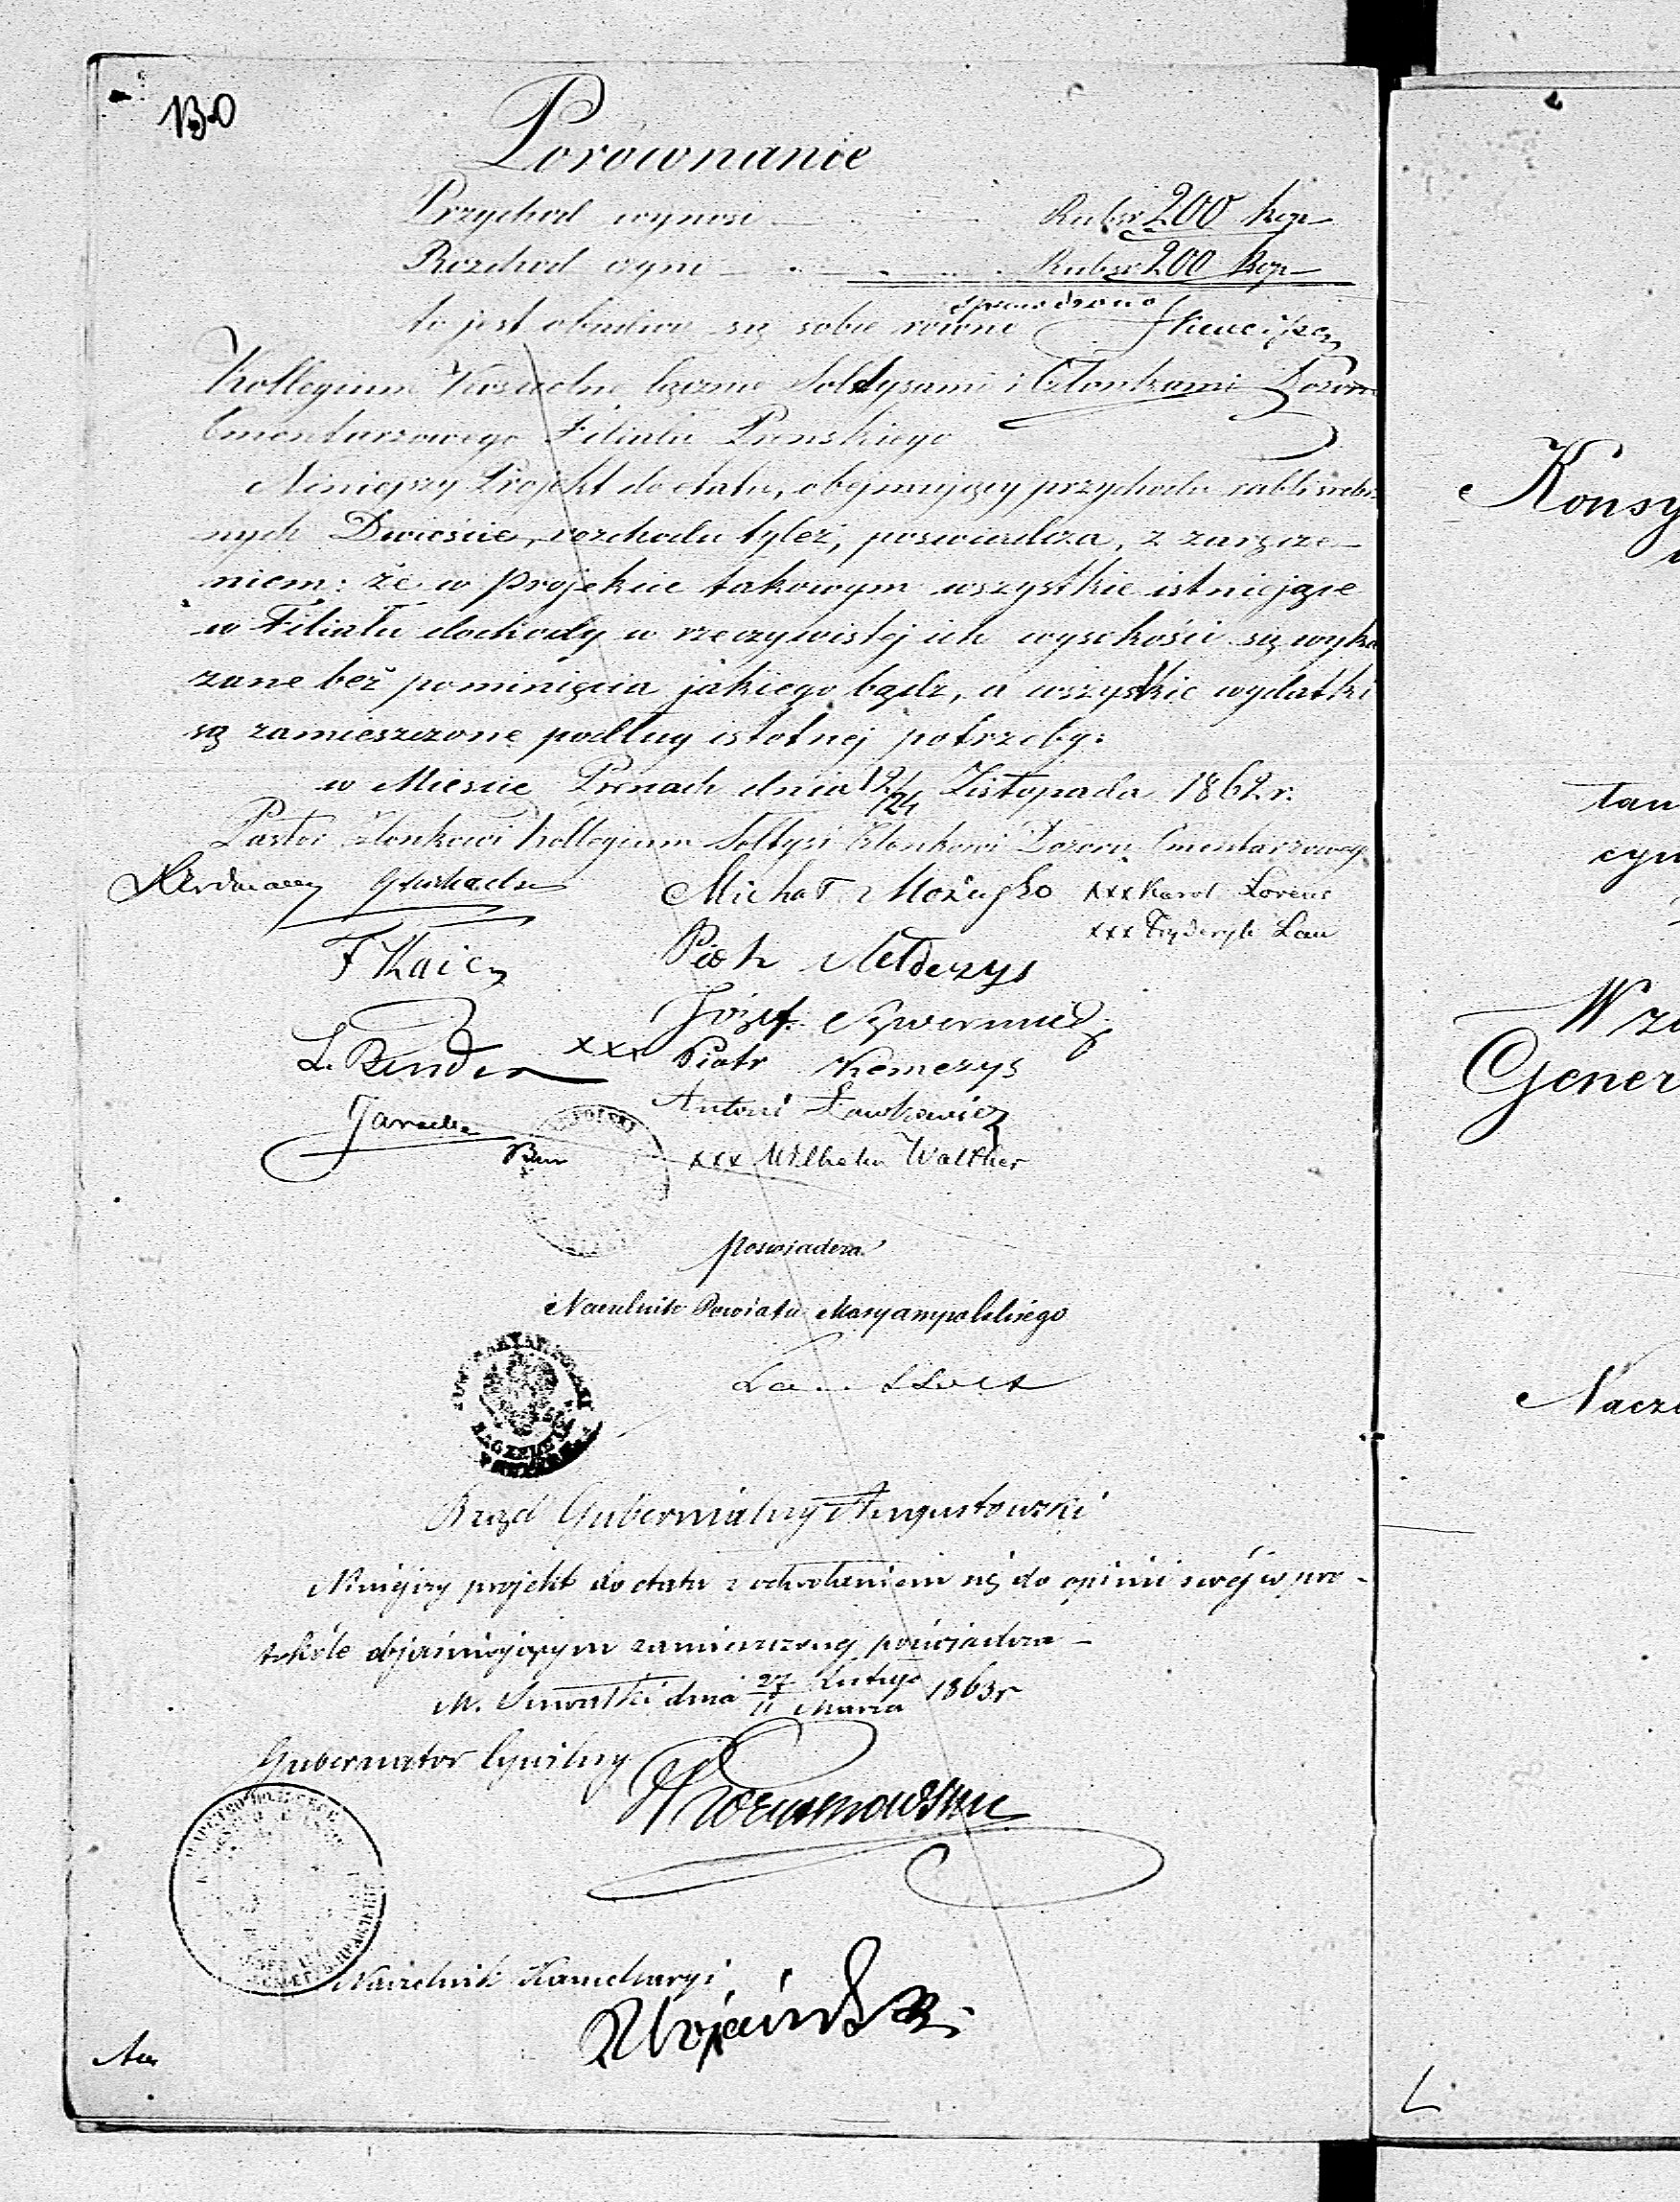 130
Porównanie
Przychod wynosi Rubsr 200 kop
Rozchod czyni Rubsr 200 kop
sprawdzono
to jest obadwa są sobie równe
Kollegium Koscielne łącznie Sołtysami i Członkami Dozoru
Cmentarzowego Filiału Prenskiego
Niniejszy Projekt do etatu, obejmujący przychodu rubli srebr
nych Dwiescie, rozchodu tyleż, poswiadcza, z zaręcze-
niem: że w projekcie takowym wszystkie istniejące
w Filiału dochody w rzeczywistéj ich wysokości są wyka
zane beż pominięcia jakiego bądz, a wszystkie wydatki
są zamieszczone podług istotnej potrzeby.
w Miescie Prenach dnia 12/24 Listopada 1862 r.
Pastor Członkowi Kollegium Sołtysi Członkowi Dozoru Cmentarzowego
Michał xxx Karol Lorenc
xxx Fryderyk Lau
F Kaie
Piotr Mełderys
Józef
L. Bender xxx Piotr Kemezys
Antoni Ławkowicz
xxx Wilhelm Walther
poswiadcza
Naczelnik Powiatu Maryampolskiego
Rząd Gubernialny Augustowski
Niniejszy projekt do etatu z odwołaniem się do opinii swéj w pro-
tokóle objaśniającym zamieszczonej poświadcza
M. Suwałki dnia 27 Lutego / 11 Marca 1863 r
Gubernator Cywilny
Naczelnik Kancellaryi
Konsy
tan
cyn
W za
Gener
Nacze